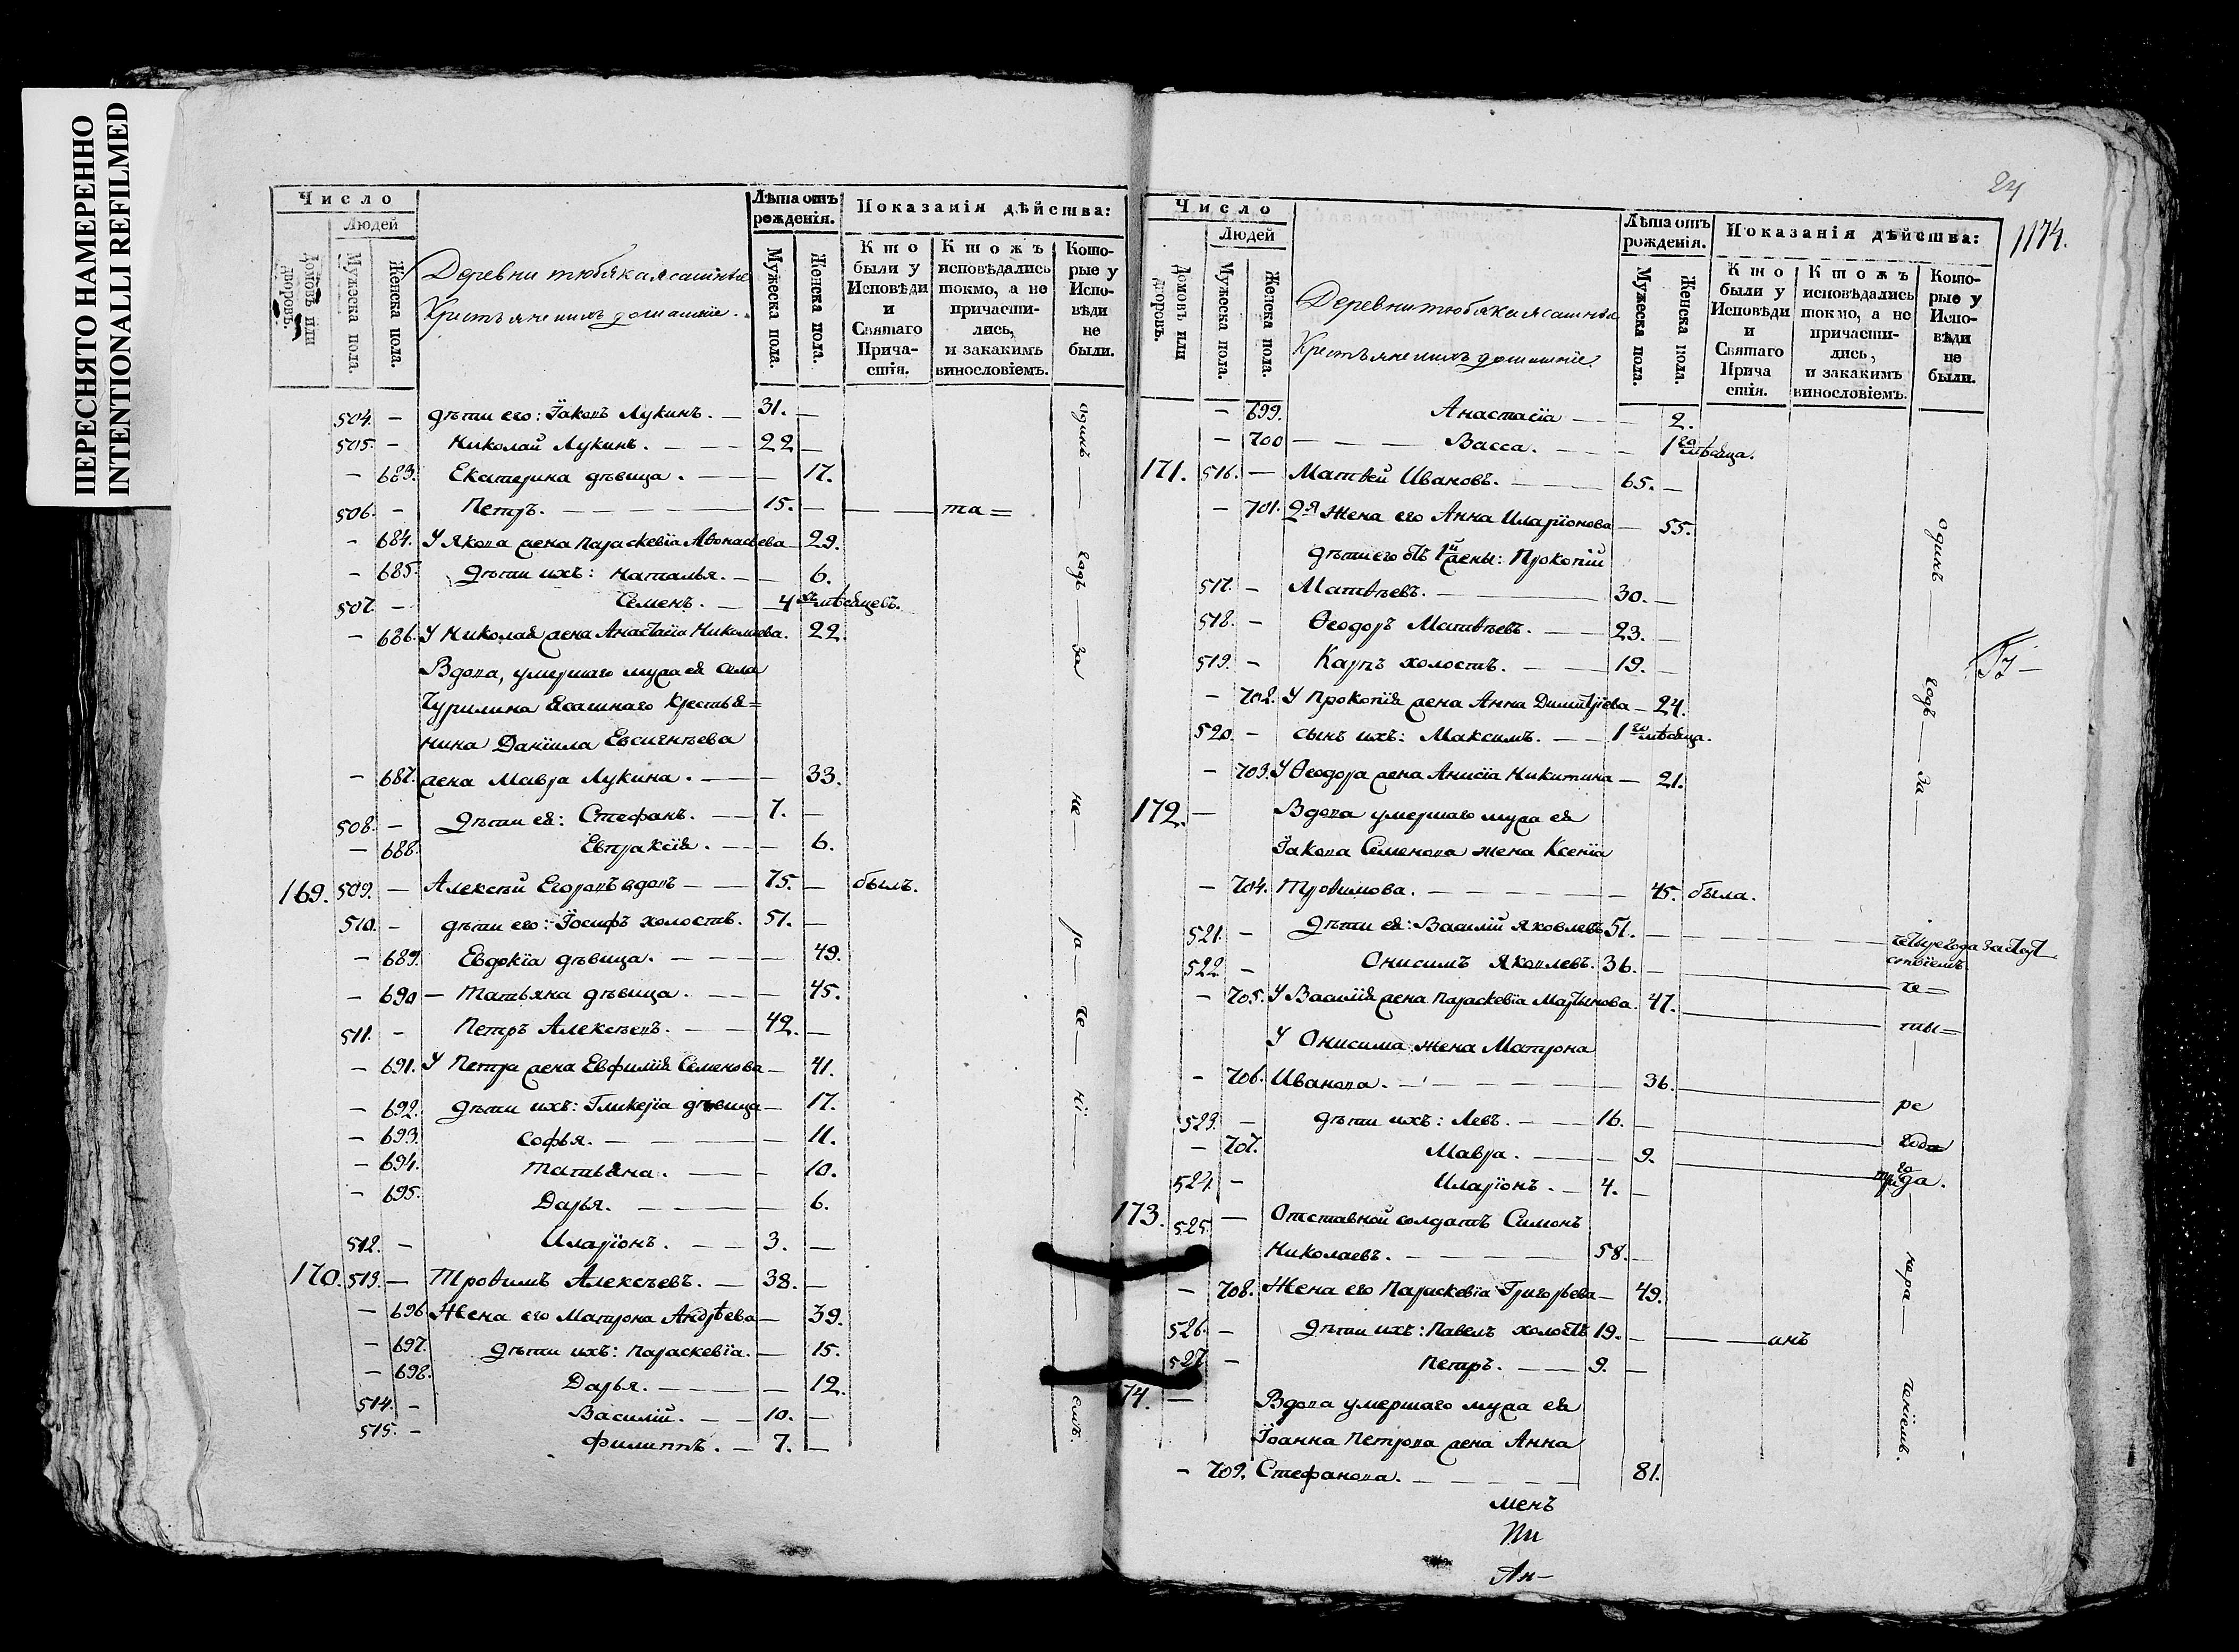 ПЕРЕСНЯТО НАМЕРЕННО
INTENTIONALLI REFILMED
Число
Людей
Домовъ или дворовъ.
Мужеска пола.
Женска пола.
Деревни тюбяка ясашныя
Крестьяне ихъ домашніе.
Лѣта отъ рожденія.
Мужеска пола.
Женска пола.
Показанія дѣйства:
Кто были у Исповѣди и Святаго Причастія.
Ктожъ исповѣдались токмо, а не причастились, и закакимъ винословіемъ.
Которые у Исповѣди не были.
504. — дѣти его: Іаковъ Лукинъ. — 31. —
505. — Николай Лукинъ. — 22 —
— 683. Екатерина дѣвица. — 17.
506. — Петръ. — 15. — та=
— 684. У Якова жена Параскевіа Аѳонасьева 29.
— 685. дѣти ихъ: Наталья. — 6.
507. — Семенъ. — 4хъ мѣсяцевъ.
— 686. У Николая жена Анастасіа Николаева. 22.
Вдова, умершаго мужа ея села
Чурилина Ясашнаго Крестья=
нина Даніила Евсигнѣева
— 687. жена Мавра Лукина. — 33.
508. — Дѣти ея: Стефанъ. — 7. —
— 688. Евпраксія. — 6.
169. 509. — Алексѣй Егоровъ вдовъ — 75. — былъ.
510. — дѣти его: Іосифъ холостъ. 51. —
— 689. Евдокіа дѣвица. — 49.
— 690 — Татьяна дѣвица. — 45.
511. — Петръ Алексѣевъ. — 42. —
— 691. У Петра жена Евфимія Семенова — 41.
— 692. дѣти ихъ: Гликеріа дѣвица — 17.
— 693. Софья. — 11.
— 694. Татьяна. — 10.
— 695. Дарья. — 6.
512. — Иларіонъ. — 3. —
170. 513. — Троѳимъ Алексѣевъ. — 38. —
— 696 Жена его Матрона Андрѣева — 39.
— 697. дѣти ихъ: Параскевіа. — 15.
— 698. Дарья. — 12.
514. — Василій. — 10. —
515. — Филиппъ. — 7. —
одинъ — годъ — за — не — ра — че — ні — емъ.
24
1174.
Число
Людей
Домовъ или дворовъ.
Мужеска пола.
Женска пола.
Деревни тюбяка ясашныя
Крестьяне ихъ домашніе.
Лѣта отъ рожденія.
Мужеска пола.
Женска пола.
Показанія дѣйства:
Кто были у Исповѣди и Святаго Прича стія.
Ктожъ исповѣдались токмо, а не причастились, и закакимъ винословіемъ.
Которые у Исповѣди не были.
— 699. Анастасіа — 2.
— 700 — Васса. — 1го мѣсяца.
171. 516. — Матѳей Ивановъ. — 65. —
— 701. 2я жена его Анна Иларіонова — 55.
дѣти его отъ 1й жены: Прокопій
517. — Матѳѣевъ. — 30. —
518. — Ѳеодоръ Матѳѣевъ. — 23. —
519. — Карпъ холостъ. — 19. —
— 702. У Прокопія жена Анна Димитріева — 24.
520. — сынъ ихъ: Максимъ. — 1го мѣсяца.
— 703. У Ѳеодора жена Анисіа Никитина — 21.
172. — Вдова умершаго мужа ея
Іакова Семенова жена Ксеніа
— 704. Троѳимова. — 45. была.
521. — Дѣти ея: Василій Яковлевъ 51. — четыре года за отстоіемъ
522. — Онисимъ Яковлевъ. 36. — че=
— 705. У Василія жена Параскевіа Мартынова. 47. — ты=
У Онисима жена Матрона
— 706. Иванова. — 36. — ре
523. — дѣти ихъ: Левъ. — 16. — года
— 707. Мавра. — 9. — три года.
524. — Иларіонъ. — 4. —
173. 525. — Отставной солдатъ Симонъ
Николаевъ. — 58. —
— 708. Жена его Параскевіа Григорьева — 49.
526. — Дѣти ихъ: Павелъ холостъ 19. — инъ
527. — Петръ. — 9. —
74. — Вдова умершаго мужа ея
Іоанна Петрова жена Анна
— 709. Стефанова. — 81.
одинъ — годъ — за — нера — ченіемъ.
менъ
Пи
Ан—